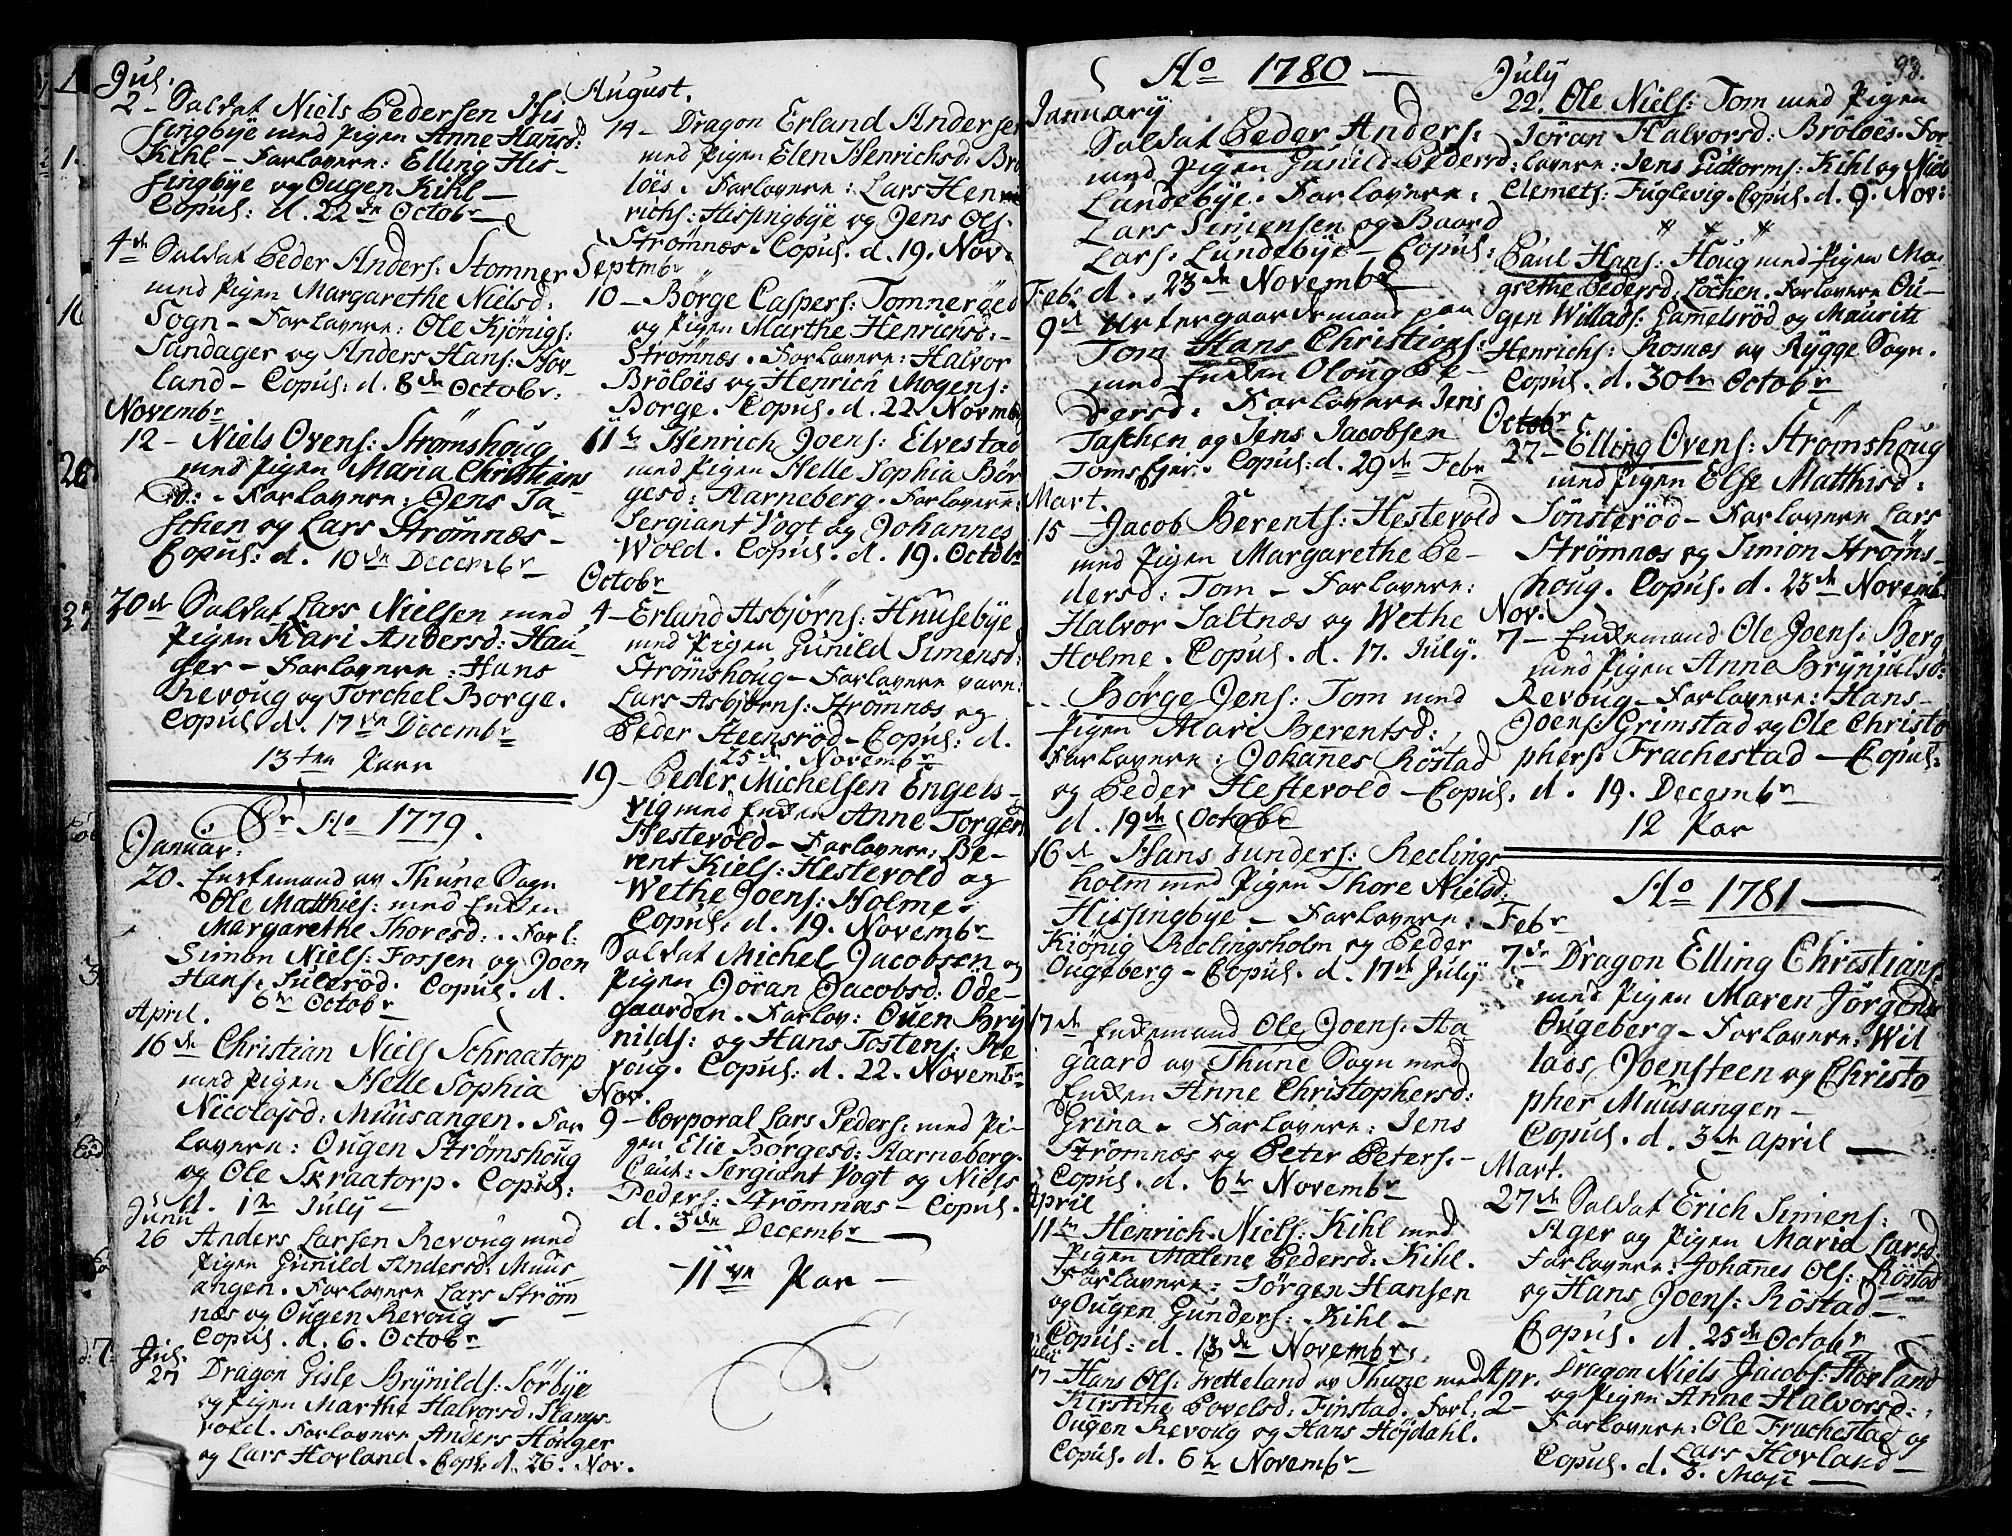 Jul.
2 - Soldat Niels Pedersen His
singbye med Pigen Anne Hansd:
Kihl - Forlovere: Elling His-
singbye og Ougen Kihl -
Copul: d. 22de Octobr
4de Soldat Peder Anders: Stomner
med Pigen Margarethe Nielsd:
Sogn - Forlovere: Ole Kjönigs:
Sundager og Anders Hans: Hov-
land - Copul: d. 8de Octobr:
Novembr
12 - Niels Ovens: Strömshoug
med Pigen Maria Christians
D: - Forlovere: Jens Ta-
schen og Lars Strömnæs -
Copul: d. 10de Decembr
20de Soldat Lars Nielsen med
Pigen Kari Andersd: Hau-
ger - Forlovere: Hans
Revoug og Torchel Borge.
Copul d. 17de Decembr
13ten Parr
Pr Ao 1779.
Januar:
20. Enkemand av Thune Sogn
Ole Matthies: med Enken
Margarethe Thoresd: Forl:
Simon Niels: Fossen og Joen
Hans: Suleröd. Copul. d.
6te Octobr
April.
16de Christian Niels Schraatorp
med Pigen Helle Sophia
Nicolajsd: Muusangen. For
lovere: Ougen Strömshoug
og Ole Skraatorp. Copul:
d. 1te July -
Junii
26 Anders Larsen Revoug med
Pigen Gunild Andersd: Muus
angen. Forlovere Lars Ström
næs og Ougen Revoug -
Copul. d. 6. Octobr
Jul.
27 Dragon Gisle Brynilds: Sörbye
og Pigen Marthe Halvorsd: Slangs
vold. Forlovere Anders Hönger
og Lars Hovland. Cop: d. 26. Nov.
August.
14 - Dragon Erland Andersen
med Pigen Elen Henrichsd: Brö
löes. Forlovere: Lars Hen
richs: Hissingbye og Jens Ols:
Strömnæs. Copul. d. 19. Nov.
Septmbr
10 - Börge Caspers: Tomneröed
og Pigen Marthe Henrichsd: -
Strömnæs. Forlovere: Halvor
Brölöes og Henrich Mogens:
Borge. Copul. d. 22. Novmb
11te Henrich Joens: Elvestad
med Pigen Helle Sophia Bör
gesd: Aarneberg. Forlovere:
Sergiant Vogt og Johannes
Wold. Copul. d. 19. Octobr
Octobr
4 - Erland Asbjörns: Huusebye
med Pigen Gunild Simensd:
Strömshoug - Forlovere vare:
Lars Asbjörns: Strömnæs og
Peder Steensröd - Copul: d.
25de Novembr
19 - Peder Michelsen Engels-
vig med Enken Anne Torgers
Hestevold - Forlovere: Be-
rent Kiels: Hestevold og
Wethe Joens: Holme.
Copul: d. 19. Novembr
Soldat Michel Jacobsen og
Pigen Jöran Jacobsd: Öde-
gaarden. Forlov: Ouen Bry
nilds: og Hans Tostens: Re
voug. Copul: d. 22. Novembr
Nov.
9 - Corporal Lars Peders: med Pi-
gen Elie Börgesd: Aarneberg.
Caut: Sergiant Vogt og Niels
Peders: Strömnæs - Copul.
d. 3de Decembr
11ve Par -
Ao 1780 -
January
Soldat Peder Anders:
med Pigen Gunild Pedersd:
Lundebye. Forlovere:
Lars Simensen og Baard
Lars: Lundebye - Copul:
d. 23de Novembr
Febr.
9de Untergaardsmand paa
Tom Hans Christians:
med Enken Oloug Pe-
dersd: Forlovere Jens
Taschen og Jens Jacobsen
Tomsejer. Copul: d. 29de Febr
Mart.
15 - Jacob Berents: Hestevold
med Pigen Margarethe Pe-
dersd: Tom - Forlovere:
Halvor Saltnæs og Wethe
Holme. Copul. d. 17. July.
Börge Jens: Tom med
Pigen Mari Berentsd:
Forlovere: Johannes Röstad
og Peder Hestevold - Copul:
d. 19de Octobr
16de Hans Gunders: Reelings
holm med Pigen Thore Nielsd:
Hissingbye - Forlovere:
Kiönig Reelingsholm og Peder
Ougeberg - Copul. d. 17de July
17de Enkemand Ole Joens: Aa
gaard av Thune Sogn med
Enken Anne Christophersd:
Grina - Forlovere: Jens
Strömnæs og Peter Peters: -
Copul. d. 6te Novembr
April
11te Henrich Niels: Kihl med
Pigen Malene Pedersd: Kihl.
Forlovere: Jörgen Hansen
og Ougen Gunders: Kihl -
Copul: d. 13de Novembr.
July
17 Hans Ols: Tretteland av Thune med
Kirstine Povelsd: Finstad. Forl:
Ougen Revoug og Hans Höjdahl.
Copul. d. 6te Novembr
93.
July
22. Ole Niels: Tom med Pigen
Jöran Halvorsd: Brölöes. For
lovere: Jens Guttorms: Kihl og Niels
Clemets: Fuglevig. Copul. d. 9. Nov:
Paul Hans: Houg med Pigen Ma-
grethe Pedersd: Löchen. Forlovere Ou-
gen Willads: Gamelsröd og Mauritz
Henrichs: Rosnæs av Rygge Sogn.
Copul. d. 30te Octobr
Octobr
27 - Elling Ovens: Strömshoug
med Pigen Else Matthisd:
Sönsteröd - Forlovere Lars
Strömnæs og Simon Ströms-
houg. Copul. d. 23de Novemb.
Nov.
7 - Enkemand Ole Joens: Berg
med Pigen Anne Brynjulsd:
Revoug - Forlovere: Hans
Joens: Grimstad og Ole Christo
phers: Frachestad - Copul:
d. 19. Decembr
12 Par
Ao 1781
Febr
7de Dragon Elling Christians:
med Pigen Maren Jörgensd:
Ougeberg - Forlovere: Wil
lads Joensteen og Christo
pher Muusangen -
Copul. d. 3de April
Mart.
27de Soldat Erich Simens:
Ager og Pigen Maria Larsd:
Forlovere: Johannes Ols: Röstad
og Hans Joens: Röstad -
Copul. d. 25de Octobr
Apr. Dragon Niels Jacobs: Hovland
2 - og Pigen Anne Halvorsd:
Forlovere: Ole Frachestad og
Lars Hovland -
Copul. d. 3. Maji